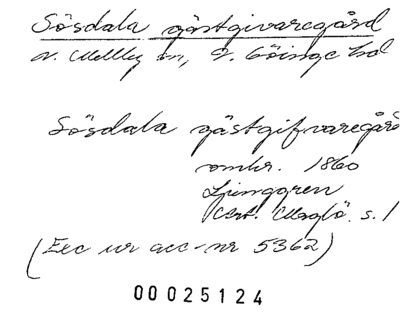 Sösdala gästgivaregård
N. Mellby sn, V. Göinge hd
Sösdala gästgifvaregård
omkr. 1860
Ljunggren
s. 1
(Exc ur acc-nr 5362)
00025124